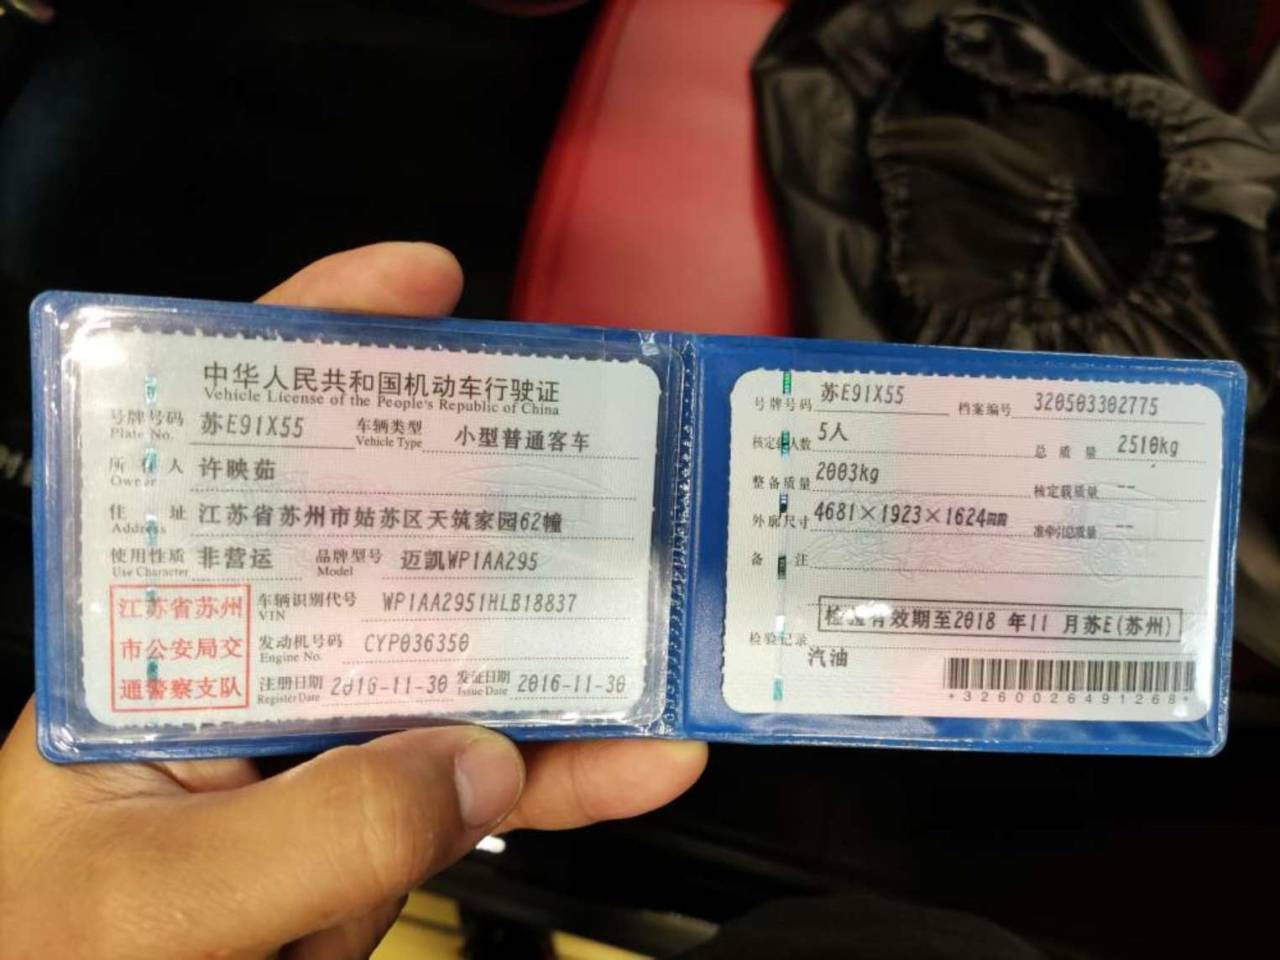 中华人民共和国机动车行驶证
Vehicle License of the People's Republic of China
号牌号码 苏E91X55 车辆类型 小型普通客车
Plate No. Vehicle Type
所有人 许映茹
Owner
住址 江苏省苏州市姑苏区天筑家园62幢
Address
使用性质 非营运 品牌型号 迈凯WP1AA295
Use Character Model
江苏省苏州
市公安局交
通警察支队
车辆识别代号 WP1AA2951HLB18837
VIN
发动机号码 CYP036350
Engine No.
注册日期 2016-11-30 发证日期 2016-11-30
Register Date Issue Date
号牌号码 苏E91X55 档案编号 320503302775
核定载人数 5人 总质量 2510kg
整备质量 2003kg 核定载质量 --
外廓尺寸 4681×1923×1624mm 准牵引总质量 --
备注
检验有效期至2018 年11 月苏E(苏州)
检验记录
汽油
*3260026491268*